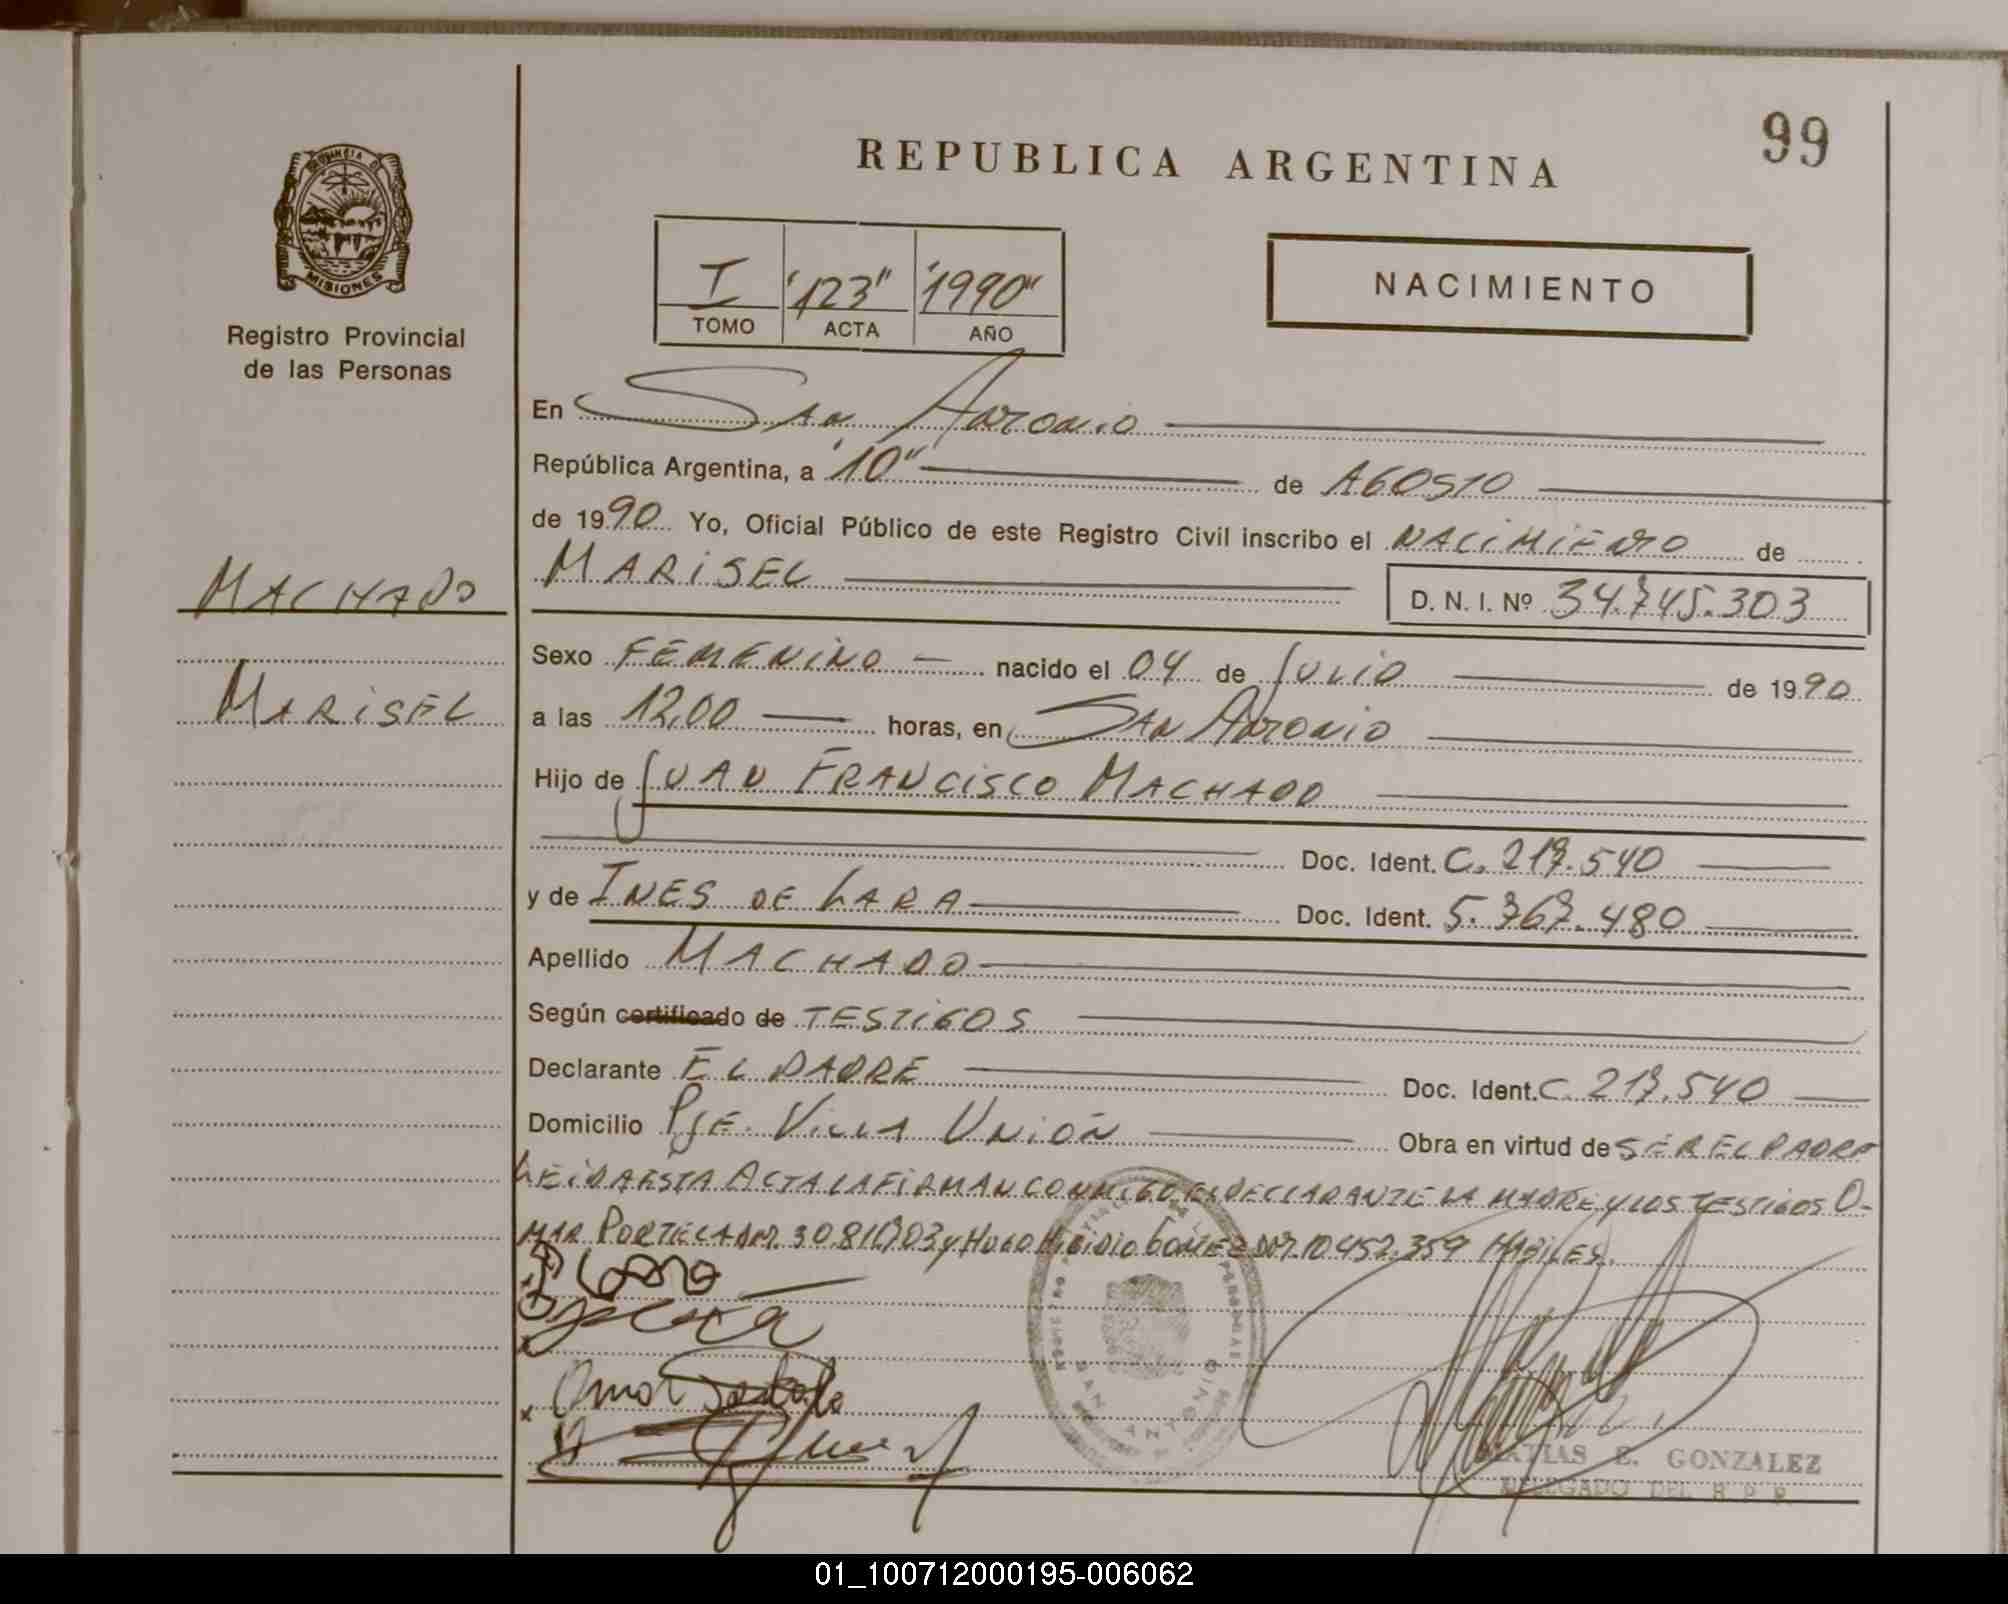 99
REPUBLICA ARGENTINA
PROVINCIA DE
MISIONES
Registro Provincial
de las Personas
NACIMIENTO
I "123" "1990"
TOMO ACTA AÑO
En San Antonio
República Argentina, a "10" de AGOSTO
de 1990 Yo, Oficial Público de este Registro Civil inscribo el NACIMIENTO de
MARISEL D. N. I. Nº 34.745.303
MACHADO
MARISEL
Sexo FEMENINO nacido el 04 de JULIO de 1990
a las 12,00 horas, en SAN ANTONIO
Hijo de JUAN FRANCISCO MACHADO
Doc. Ident. C. 217.540
y de INES DE LARA Doc. Ident. 5.767.480
Apellido MACHADO
Según certificado de TESTIGOS
Declarante EL PADRE Doc. Ident. C. 217.540
Domicilio PJE. VILLA UNIÓN Obra en virtud de SER EL PADRE
LEIDA ESTA ACTA LA FIRMAN CONMIGO EL DECLARANTE LA MADRE Y LOS TESTIGOS O-
MAR PORTELA y HUGO GOMEZ DNI. 10.452.359 HABILES.
Omar Portela
SAN ANTONIO
MATIAS E. GONZALEZ
DELEGADO DEL R. P. P.
01_100712000195-006062